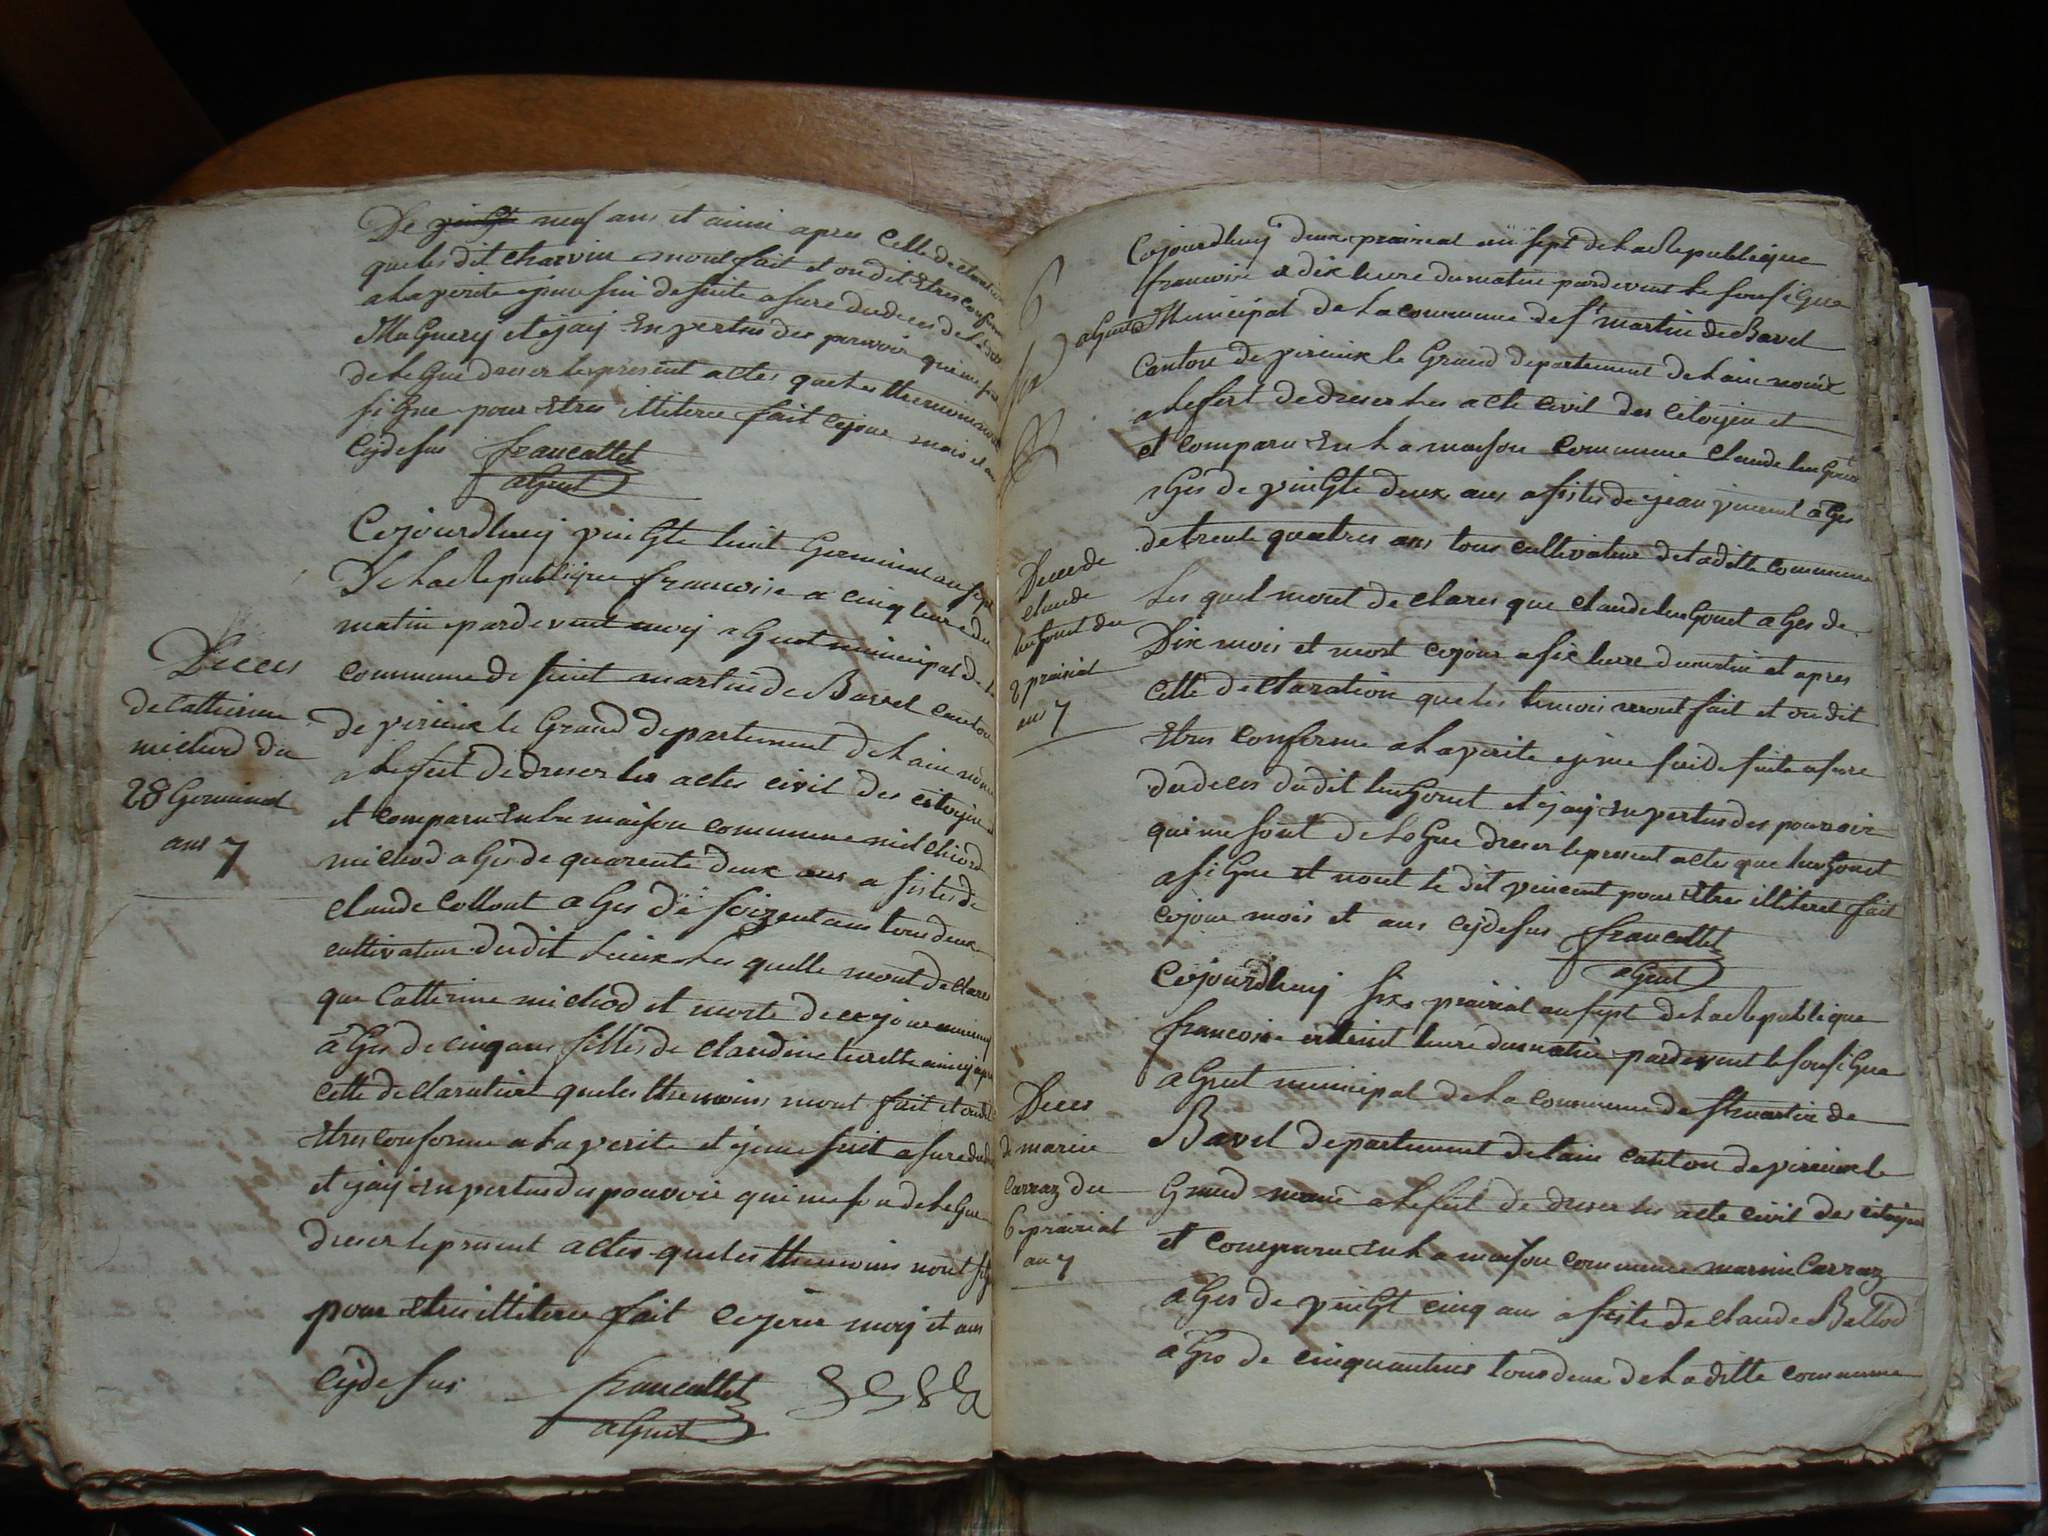 De vingt neuf ans et ainsi apres Cette declaration
queles dit charvin mont fait et ondit Etres conforme
a La verite ejeme sui desuite asure dudeces de La
Maguery et ejaij Envertus des pouvoir quime son
delegue dreser lepresent actes queles themoins nont
signe pour Etres illiteres fait cejour mois et an
Cijdesus francallet
agent
Cejourdhuij vingte huit Germinal an sept
De La Republique francoise a cinq heure du
matin pardevent moij agent municipal de la
commune de saint martin de Bavel canton
de virieux le Grand departement de Lain nomé
a Lefeit dedreser les actes civil des citoyin
et comparu En La maison commune melchiord
michod ages de quarente deux ans asistes de
claude Collout ages de soizent ans tous deux
cultivateur dudit Lieux Les quelle mont declares
que Catterine michod et morte de cejour
âges de cinq ans filles de claudine
Cette declaration queles themoins mont fait et ondit
Etres conforme a La verite et ejeme suit asure
et ejaij En vertus du pouvoir quime son delegue
dreser lepresent actes queles themoins nont signe
pour Etres illiteres fait cejour moij et ans
cijdesus francallet
agent
Deces
de Catterine
michod du
28 Germinal
ans 7
Cejourdhuij deux prairial an sept de La Republique
francoise a dix heure dumatin pardevent le sousigne
agent Municipal de La commune de st martin de Bavel
Canton de virieux le Grand departement de Lain nomé
a Lefeit dedreser Les acte civil des citoyin et
et comparu En La maison commune claude
ages de vingte deux ans asistes de ejean vincent ages
detrente quatres ans tous cultivateur de laditte commune
Les quel mont declares que claude ages de
Dix mois et mort cejour a six heure dumatin et apres
Cette declaration queles temoin mont fait et ondit
Etres conforme a La verite ejeme suidesuite asure
dudeces dudit et ejaij En vertus des pouvoir
quime sont delegue dreser lepresent actes que
asigne et nont le dit vincent pour Etres illiteret fait
cejour mois et ans cijdesus francallet
agent
Deces de
claude
du
2 prairial
ans 7
Cejourdhuij six prairial an sept de La Republique
francoise a huit heure dumatin pardevent le sousigne
agent municipal de La commune de st martin de
Bavel departement de Lain canton de virieux le
Grand nomé a Lefeit de dreser les acte civil des citoyin
et comparu En La maison commune marin Carraz
âges de vingt cinq ans asiste de claude Ballod
ages de cinquante tous deux de La ditte commune
Deces
de marin
Carraz du
6 prairial
an 7